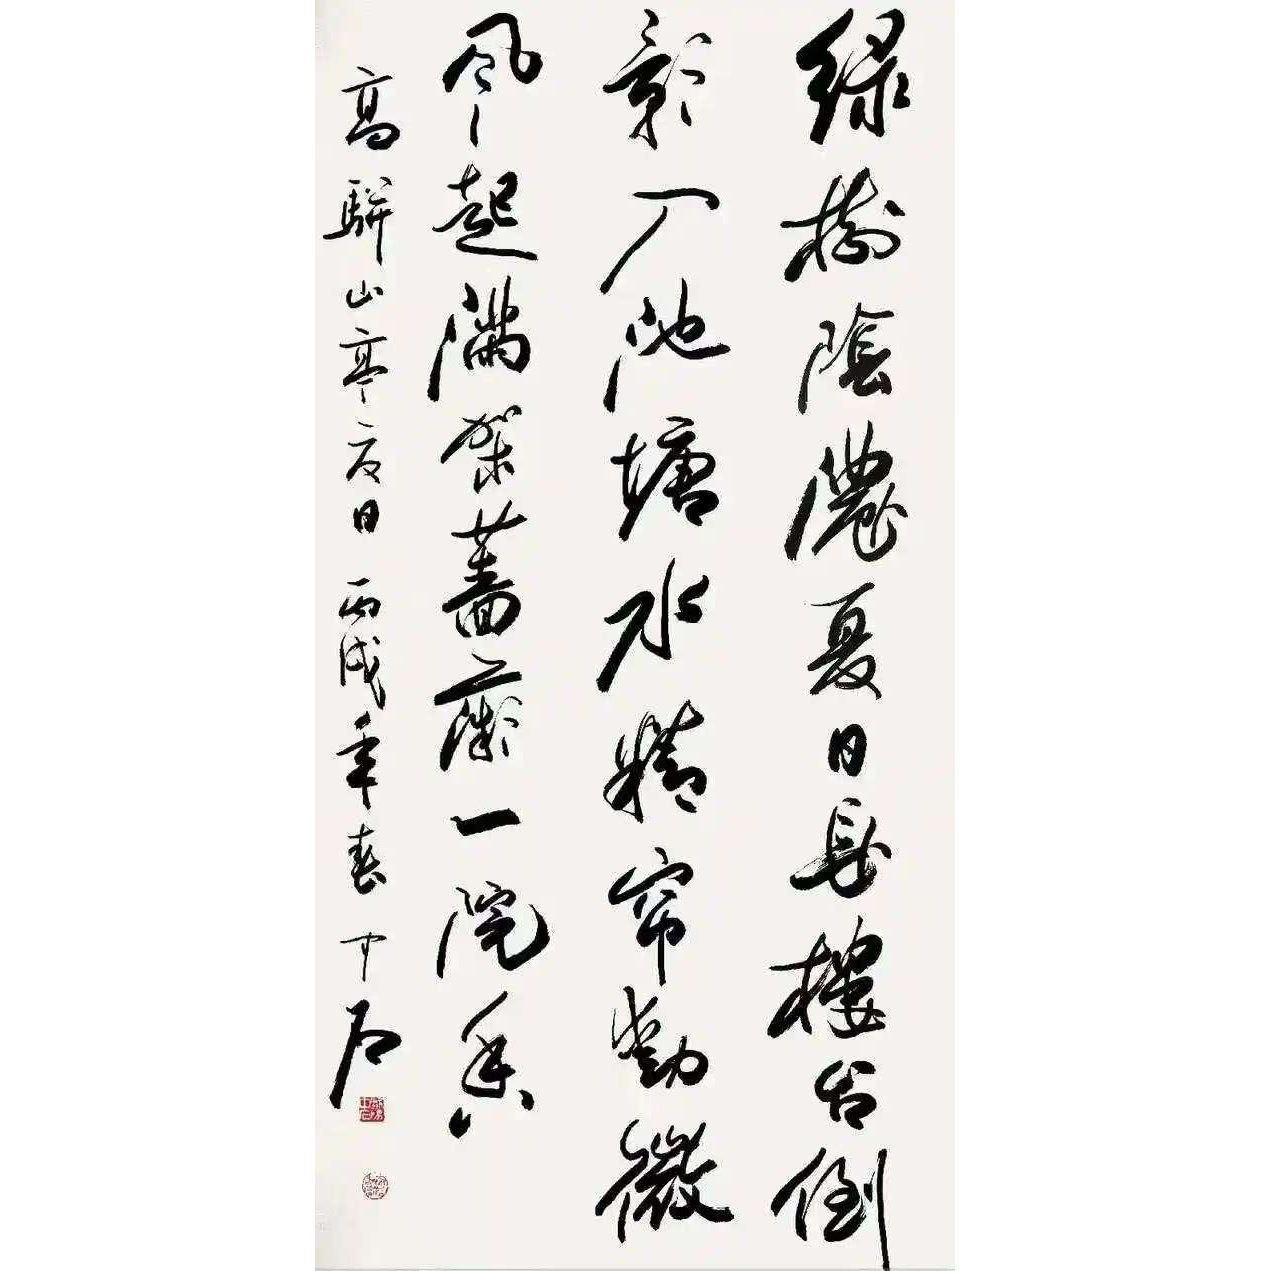 綠樹陰濃夏日長樓台倒
影入池塘水精帘動微
風起滿架薔薇一院香
高駢山亭夏日 丙戌年春 中石